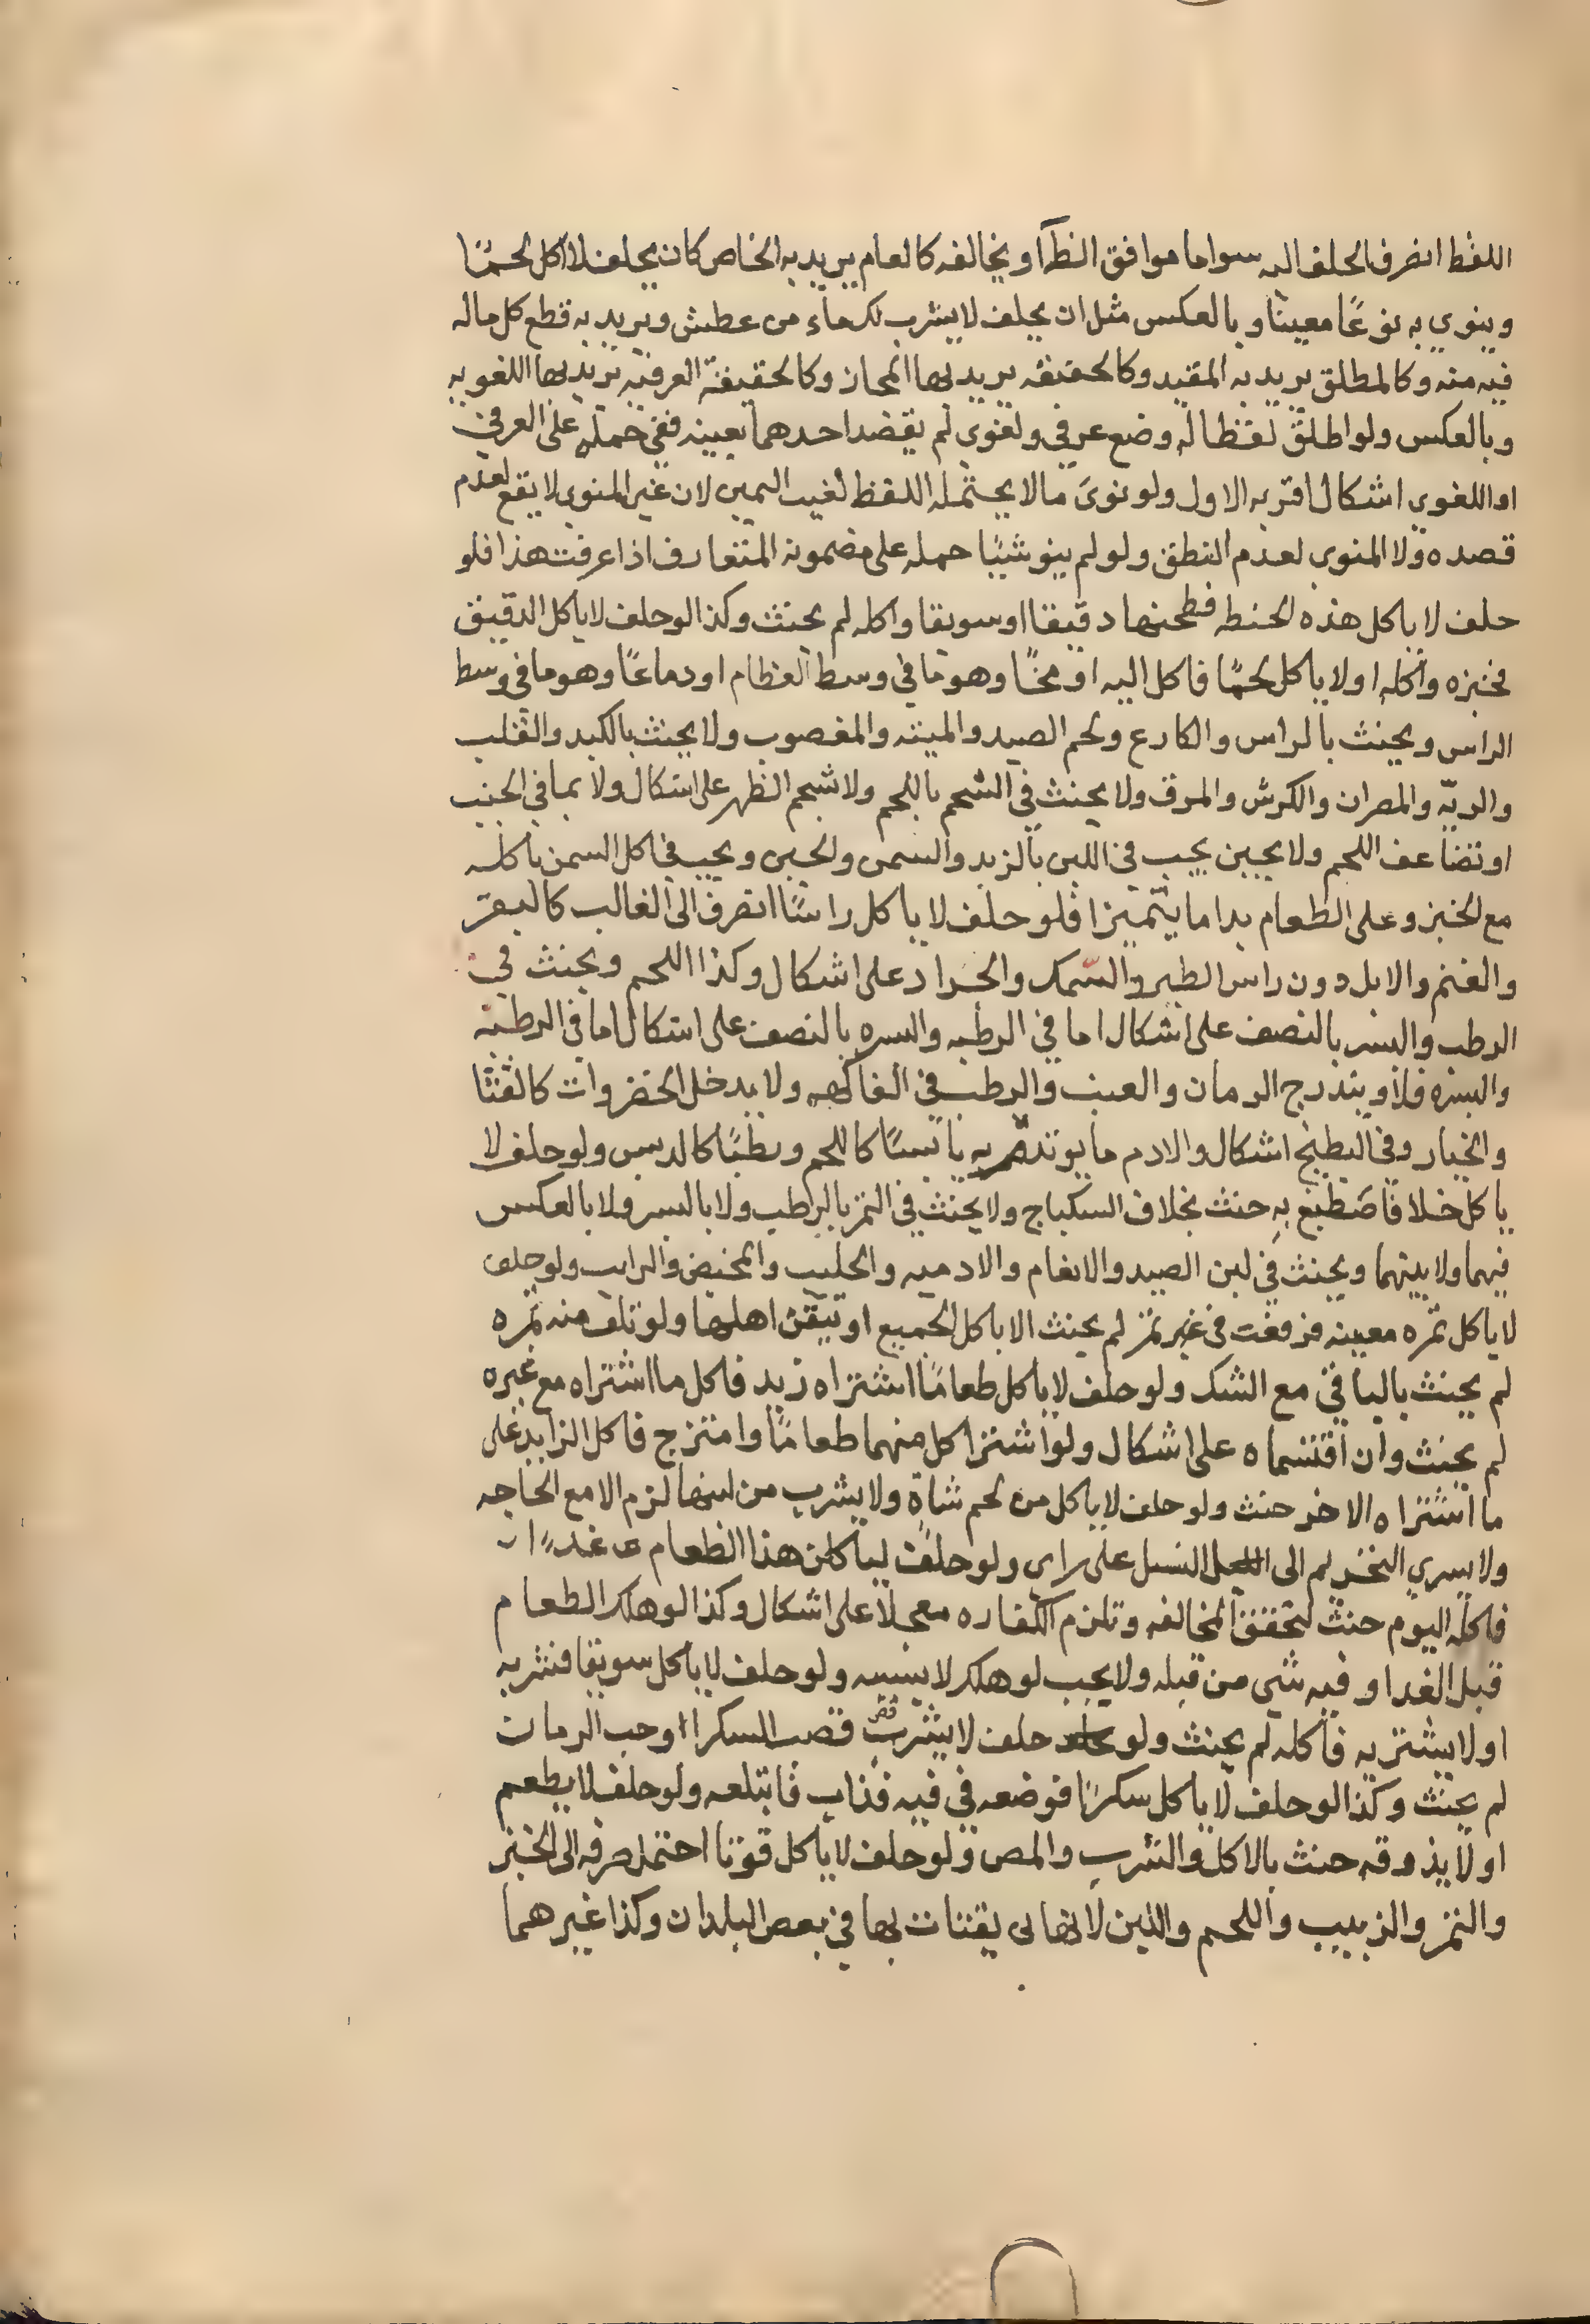 اللفظ انصرف الحلف اليه سوا ما موافق الظا او يخالفه كالعام يريد به الخاص كان يحلف لا اكل لحمًا
وينوي به نوعًا معينًا وبالعكس مثل ان يحلف لا يشرب لك ماء من عطش ويريد به قطع كل ماله
فيه منه وكالمطلق يريد به المقيد وكالحقيقه يريد بها المجاز وكالحقيقة العرفيه يريد بها اللغويه
وبالعكس ولو اطلق لفظا له وضع عرفي ولغوي لم يقصد احدهما بعينه ففي حمله على العرفي
او اللغوي اشكال اقربه الاول ولو نوى ما لا يحتمله اللفظ لغيت اليمين لان غير المنوي لا يقع لعدم
قصده ولا المنوى لعدم النطق ولو لم ينو شيئًا حمله على مضمونه المتعارف اذا عرفت هذا فلو
حلف لا ياكل هذه الحنطه فطحنها دقيقا او سويقا واكله لم يحنث وكذا لو حلف لا ياكل الدقيق
فخبزه واكله او لا ياكل لحمًا فاكل اليه او مخًا وهو ما في وسط العظام او دماغًا وهو ما في وسط
الراس ويحنث بالراس والكارع ولحم الصيد والميته والمغصوب ولا يحنث بالكبد والقلب
والريّه والمصران والكرش والمرق ولا يحنث في الشحم باللحم ولا شحم الظهر على اشكال ولا بما في الجنب
او تضاعف اللحم ولا يجبن يجب في اللبن بالزبد والسمن والجبن ويجب في اكل السمن باكله
مع الخبز وعلى الطعام بدا ما يتميزا فلو حلف لا ياكل راسًا انصرف الى الغالب كالبقر
والغنم والابل دون راس الطير والسّمك والجراد على اشكال وكذا اللحم ويحنث في
الرطب والبسر بالنصف على اشكال اما في الرطبه والبسره بالنصف على اشكال اما في الرطبه
والبسره فلا ويندرج الرمان والعنب والرطب في الفاكهه ولا يدخل الخضروات كالقثا
والخيار وفي البطيخ اشكال والادم ما يوتدم به يابسًا كاللحم ورطبًا كالدبس ولو حلف لا
ياكل خلا فاصطبغ به حنث بخلاف السكباج ولا يحنث في التمز بالرطب ولا بالبسر ولا بالعكس
فيهما ولا بينهما ويحنث في لبن الصيد والانعام والادميه والحليب والمخيض والرايب ولو حلف
لا ياكل تمره معينه فرفعت في غير تمز لم يحنث الا باكل الجميع او تيقن اهلها ولو تلف منه تمره
لم يحنث بالباقي مع الشك ولو حلف لا ياكل طعامًا اشتراه زيد فاكل ما اشتراه مع غيره
لم يحنث وان اقتسماه على اشكال ولو اشترا كل منهما طعامًا وامتزج فاكل الزايد على
ما اشتراه الاخر حنث ولو حلف لا ياكل من لحم شاة ولا يشرب من لبنها لزم الا مع الحاجه
ولا يسري التحريم الى النسل على راى ولو حلف لياكلن هذا الطعام
فاكله اليوم حنث لتحقق المخالفه وتلزم الكفاره معجلا على اشكال وكذا لو هلك الطعام
قبل الغد او فيه شي من قبله ولا يجب لو هلك لا بسببه ولو حلف لا ياكل سويقا فشربه
او لا يشتربه فاكله لم يحنث ولو حلف لا يشرب قصب السكر او حب الرمان
لم يحنث وكذا لو حلف لا ياكل سكرًا فوضعه في فيه فذاب فابتلعه ولو حلف لا يطعم
او لا يذوقه حنث بالاكل والشرب والمص ولو حلف لا ياكل قوتا احتمل صرفه الى الخبز
والتمز والزبيب واللحم واللبن لانها يقتات بها في بعض البلدان وكذا غيرهما